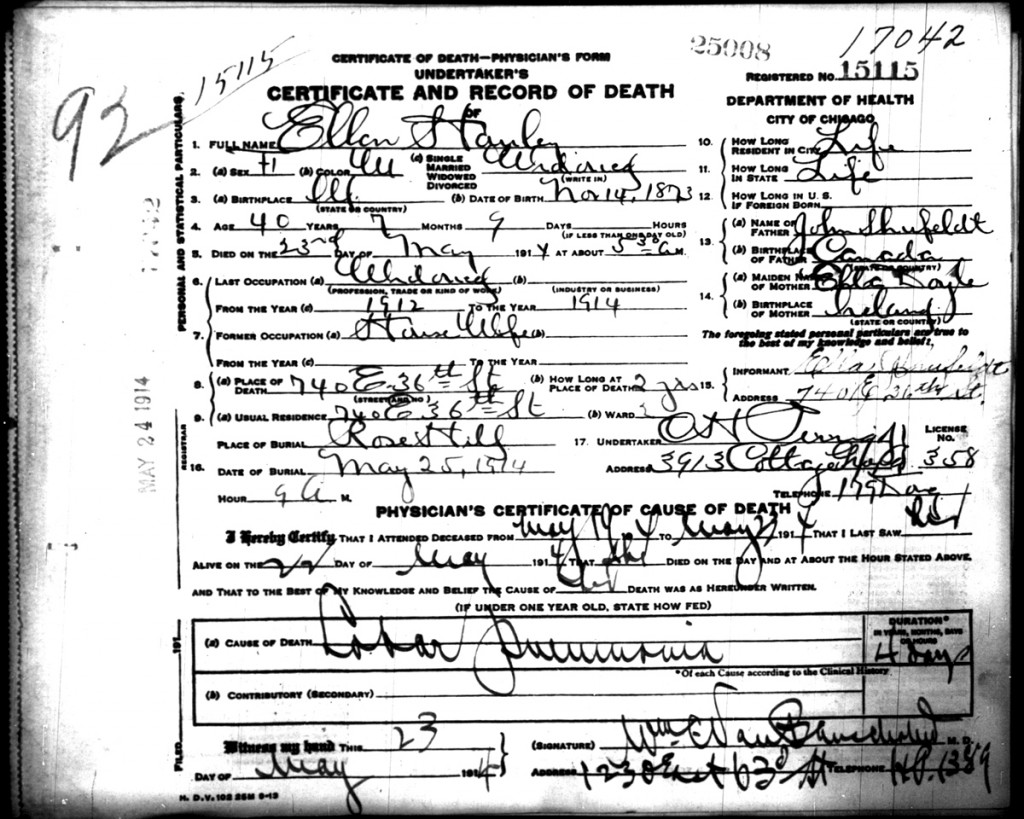 25008
17042
15115
92
CERTIFICATE OF DEATH—PHYSICIAN'S FORM
UNDERTAKER'S
CERTIFICATE AND RECORD OF DEATH
OF
REGISTERED NO. 15115
DEPARTMENT OF HEALTH
CITY OF CHICAGO
PERSONAL AND STATISTICAL PARTICULARS
1. FULL NAME Ellen Stanley
2. (a) SEX (b) COLOR W (c) SINGLE MARRIED WIDOWED DIVORCED (WRITE IN)
3. (a) BIRTHPLACE Ill (STATE OR COUNTRY) (b) DATE OF BIRTH Nov 14, 1873
4. AGE 40 YEARS 7 MONTHS 9 DAYS HOURS
(IF LESS THAN ONE DAY OLD)
5. DIED ON THE 23rd DAY OF May 1914 AT ABOUT 5 30 A M.
6. LAST OCCUPATION (a) (b)
(PROFESSION, TRADE OR KIND OF WORK) (INDUSTRY OR BUSINESS)
FROM THE YEAR (c) 1912 TO THE YEAR 1914
7. FORMER OCCUPATION (a) House Wife (b)
FROM THE YEAR (c) TO THE YEAR
8. (a) PLACE OF DEATH 740 E. 36th St (b) HOW LONG AT PLACE OF DEATH 2 yrs
(STREET AND NO.)
9. (a) USUAL RESIDENCE 740 E. 36th St (b) WARD
16. PLACE OF BURIAL Rose Hill
DATE OF BURIAL May 25, 1914
HOUR 9 A M.
10. HOW LONG RESIDENT IN CITY Life
11. HOW LONG IN STATE Life
12. HOW LONG IN U.S. IF FOREIGN BORN
13. (a) NAME OF FATHER John Shufeldt
(b) BIRTHPLACE OF FATHER Canada
(STATE OR COUNTRY)
14. (a) MAIDEN NAME OF MOTHER Doyle
(b) BIRTHPLACE OF MOTHER Ireland
(STATE OR COUNTRY)
The foregoing stated personal particulars are true to the best of my knowledge and belief:
15. INFORMANT Shufeldt
ADDRESS 740 E 36th St.
17. UNDERTAKER
LICENSE NO. 358
ADDRESS 3913 Cottage Grove
TELEPHONE
REGISTRAR
MAY 24 1914
PHYSICIAN'S CERTIFICATE OF CAUSE OF DEATH
I Hereby Certify THAT I ATTENDED DECEASED FROM May 19 4 TO May 1914 THAT I LAST SAW her
ALIVE ON THE 22 DAY OF May 1914 THAT she DIED ON THE DAY AND AT ABOUT THE HOUR STATED ABOVE,
AND THAT TO THE BEST OF MY KNOWLEDGE AND BELIEF THE CAUSE OF her DEATH WAS AS HEREUNDER WRITTEN.
(IF UNDER ONE YEAR OLD, STATE HOW FED)
DURATION*
IN YEARS, MONTHS, DAYS OR HOURS
(a) CAUSE OF DEATH Lobar Pneumonia 4 days
*Of each Cause according to the Clinical History
(b) CONTRIBUTORY (SECONDARY)
FILED 191
Witness my hand THIS 23
DAY OF May 1914
(SIGNATURE) Wm. M.D.
ADDRESS 1230 East 63d St TELEPHONE H.P. 1339
H. D. V. 102 25M 9-13